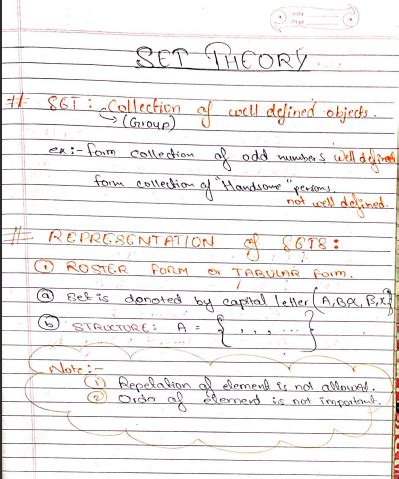 SET THEORY
# SET : Collection of well defined objects.
(Group)
ex:- form collection of odd numbers well defined
form collection of "Handsome" persons.
not well defined.
# REPRESENTATION of SETS :
① ROSTER FORM or TABULAR form.
ⓐ Set is donoted by capital letter
ⓑ STRUCTURE: A = { , , , ... }
Note :-
① Repetation of element is not allowed.
② Order of element is not important.